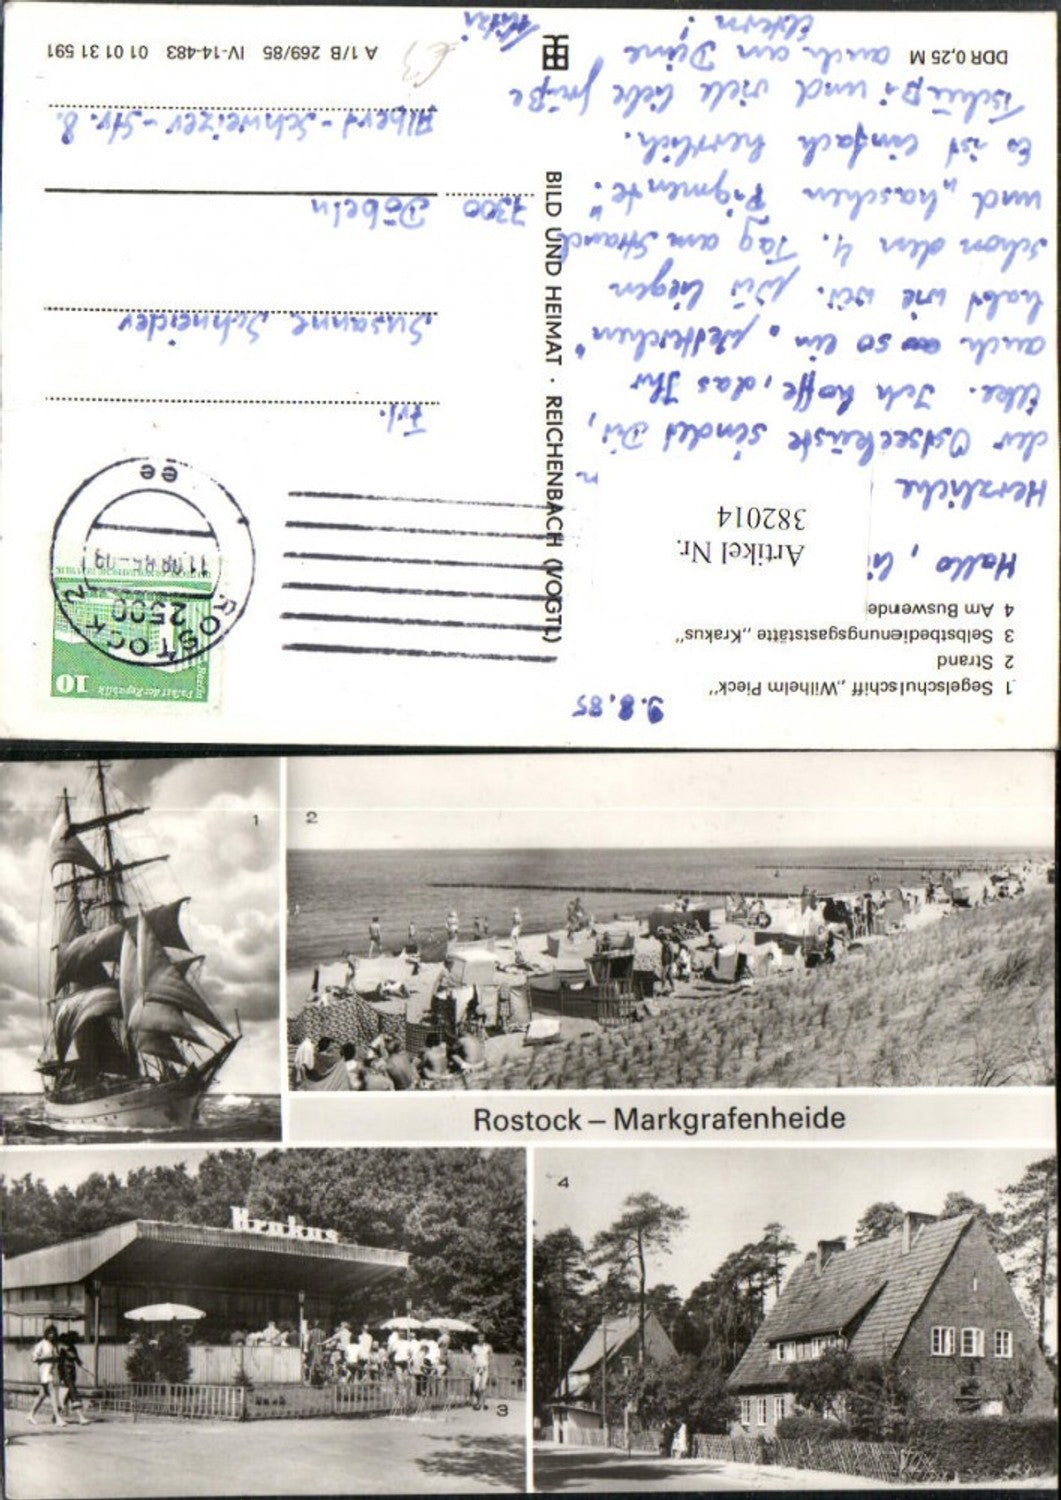 1 Segelschulschiff „Wilhelm Pieck"
2 Strand
3 Selbstbedienungsgaststätte „Krakus"
4 Am Buswende
9.8.85
Hallo,
Herzliche
der Ostseeküste sendet Dir,
Elke. Ich hoffe, das Ihr
auch so ein
habt wie wir. Wir liegen
schon den 4. Tag am Strand
und „haschen Pigmente".
Es ist einfach herrlich.
Tschüß! und viele liebe Grüße
auch an Deine
Eltern!
DDR 0,25 M
Artikel Nr.
382014
BILD UND HEIMAT · REICHENBACH (VOGTL)
10
Palast der Republik
Berlin
ROSTOCK 2
2500
11.08.85-09
ee
Frl.
Susanne Schneider
7300 Döbeln
Albert-Schweizer-Str. 8.
A 1/B 269/85 IV-14-483 01 01 31 591
1
2
Rostock – Markgrafenheide
Krakus
3
4